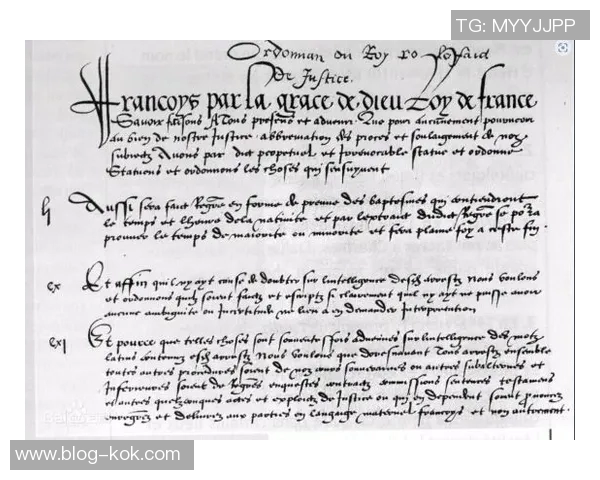 TG: MYYJJPP
Ordonnan du Roy le faict
De Justice.
Francoys par la grace de dieu Roy de france
Savoir faisons A tous presens et advenir Que pour aucunement pourveoir
au bien de nostre Justice abbreviation des proces et soulagement de noz
subiectz Avons par edict perpetuel et Irrevocable statue et ordonne
Statuons et ordonnons les choses qui sensuyvent
li Aussi sera faict Regre en forme de preuve des baptesmes qui contiendront
le temps et lheure de la nativite et par lextraict dudict Regre se porra
prouver le temps de maiorite ou minorite et fera plaine foy a ceste fin.
cx Et affin quil ny ayt cause de doubter sur lintelligence desdz arrestz Nous voulons
et ordonnons quilz soient faictz et escriptz si clairement quil ny ayt ne puisse avoir
aucune ambiguite ou Incertitude ne lieu a en demander Interpretation
cxi Et pource que telles choses sont souventesfois advenues sur lintelligence des motz
latins contenuz esdz arrestz Nous voulons que doresnavant Tous arrestz ensemble
toutes autres procedures soient de noz cours souveraines ou autres subalternes et
Inferieures soient de Regres enquestes contractz commissions sentences testamens
et autres quelzconques actes et exploictz de Justice ou qui en dependent soient prononcez
enregrez et delivrez aux parties en langage maternel francoys et non autrement.
www.blog-kok.com